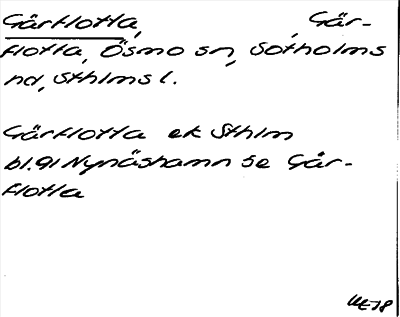 Gärflotta, , Gär-
flotta, Ösmo sn, Sotholms
hd, Sthlms l.
Gärflotta ek Sthlm
bl. 91 Nynäshamn se Går-
flotta